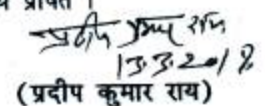 प्रदीप कुमार राय
13.3.2018
(प्रदीप कुमार राय)